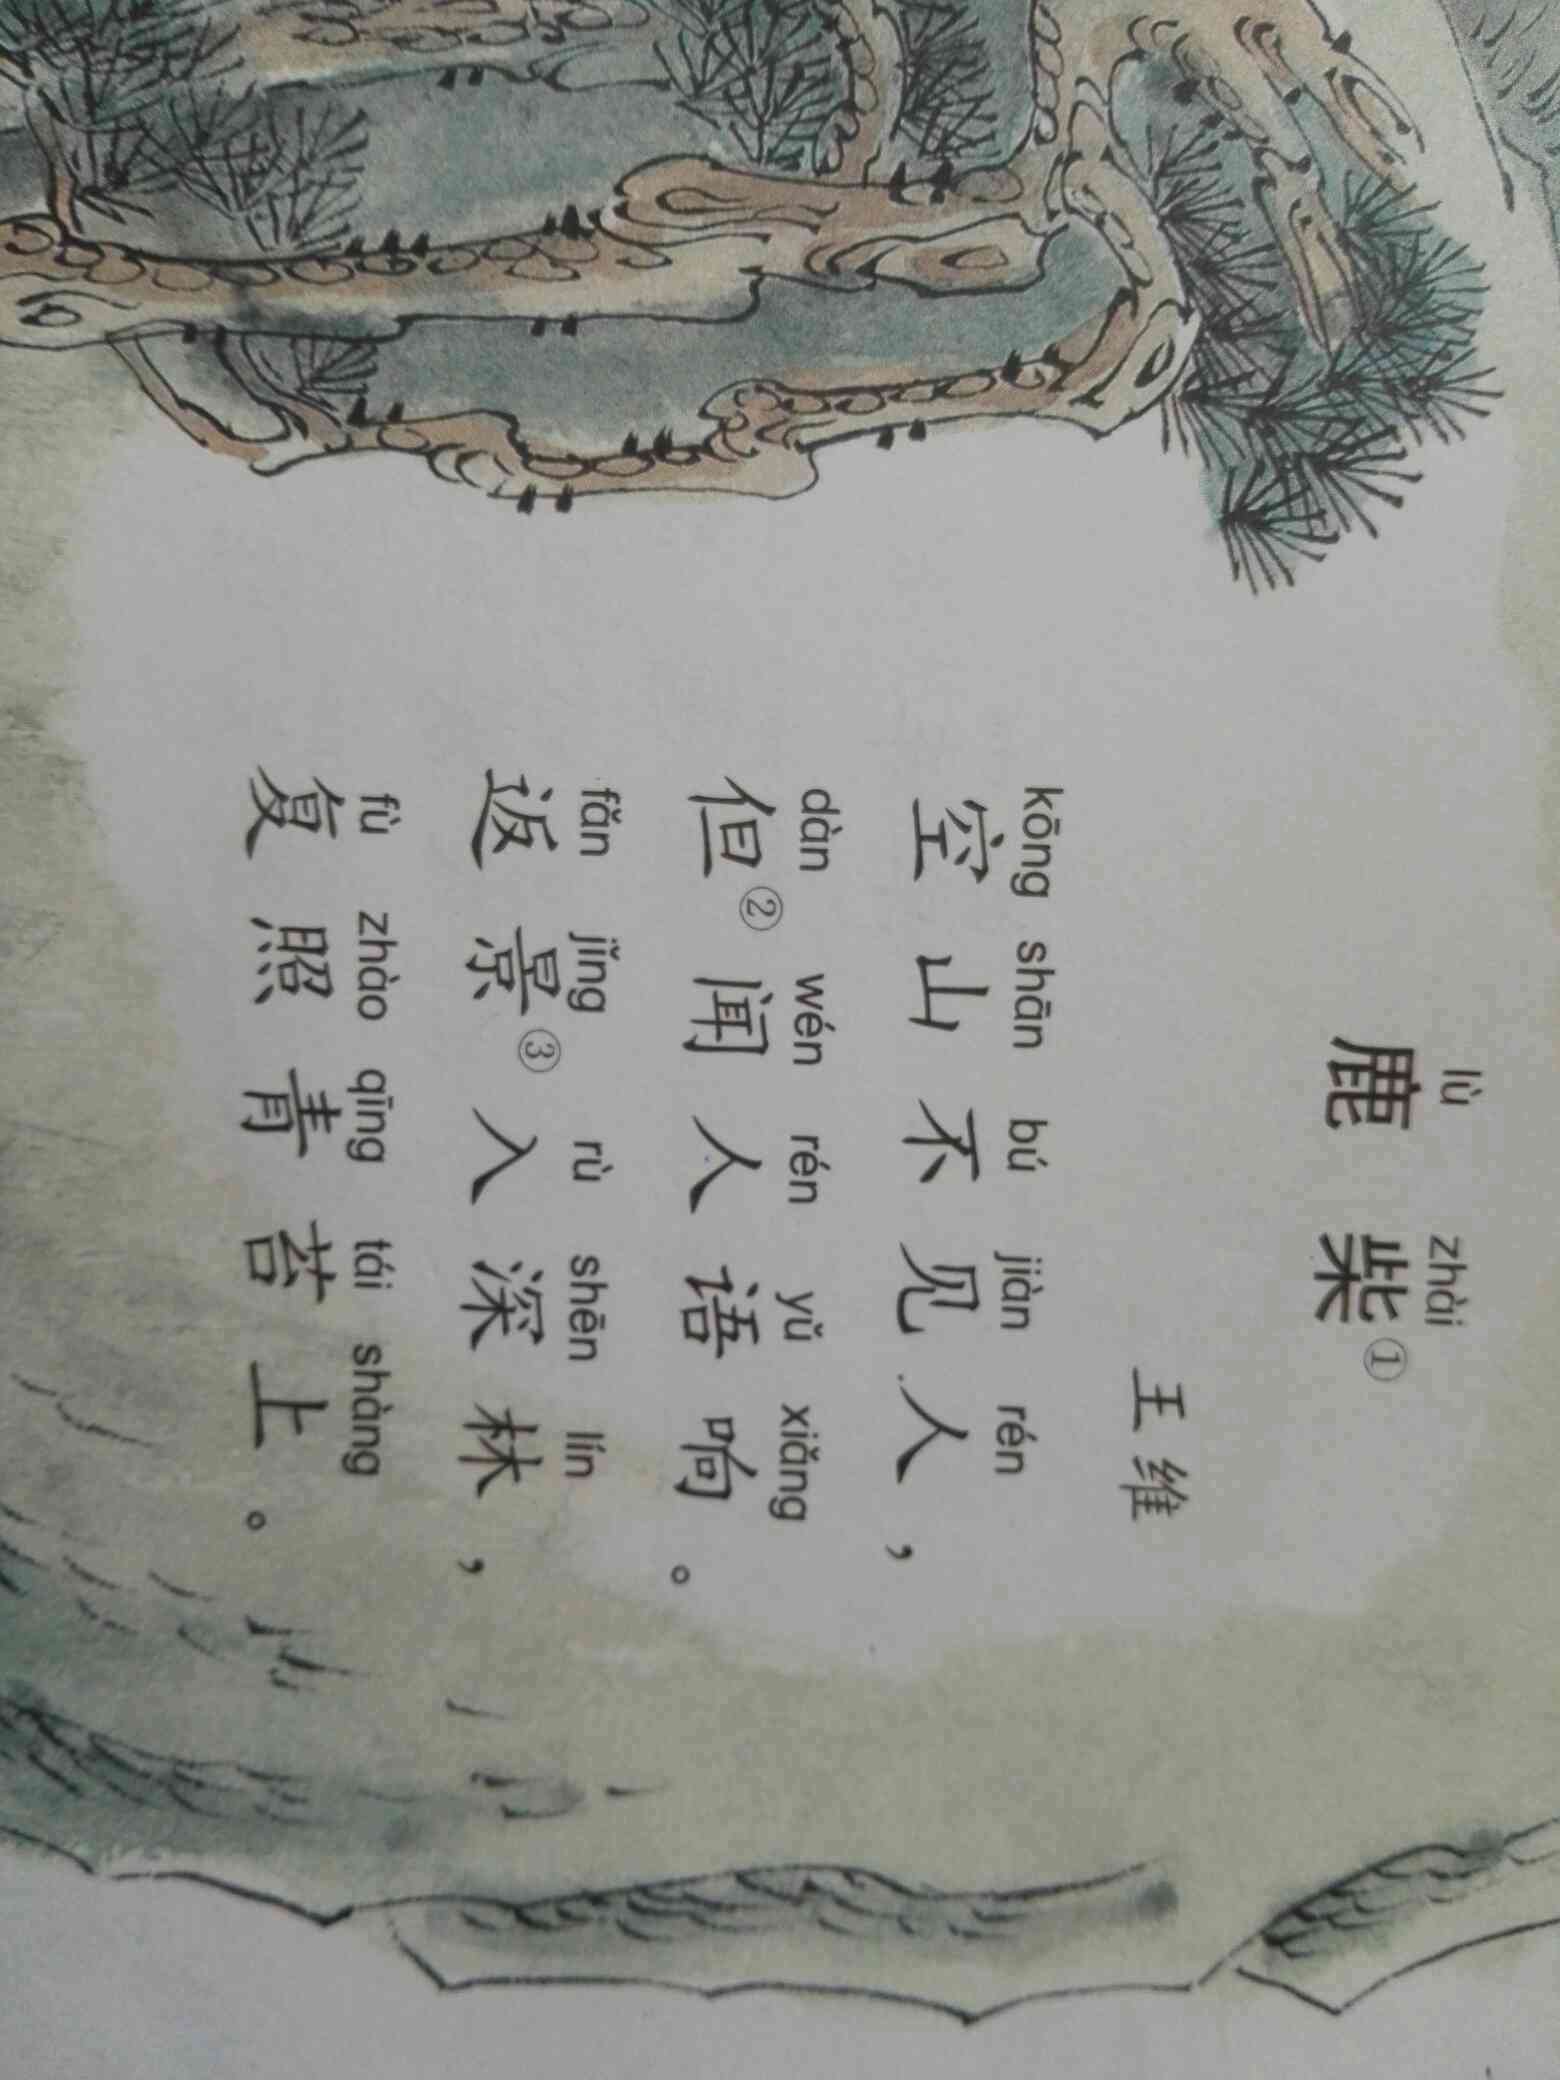 lù zhài
鹿柴①
王维
kōng shān bú jiàn rén
空山不见人，
dàn wén rén yǔ xiǎng
但②闻人语响。
fǎn jǐng rù shēn lín
返景③入深林，
fù zhào qīng tái shàng
复照青苔上。